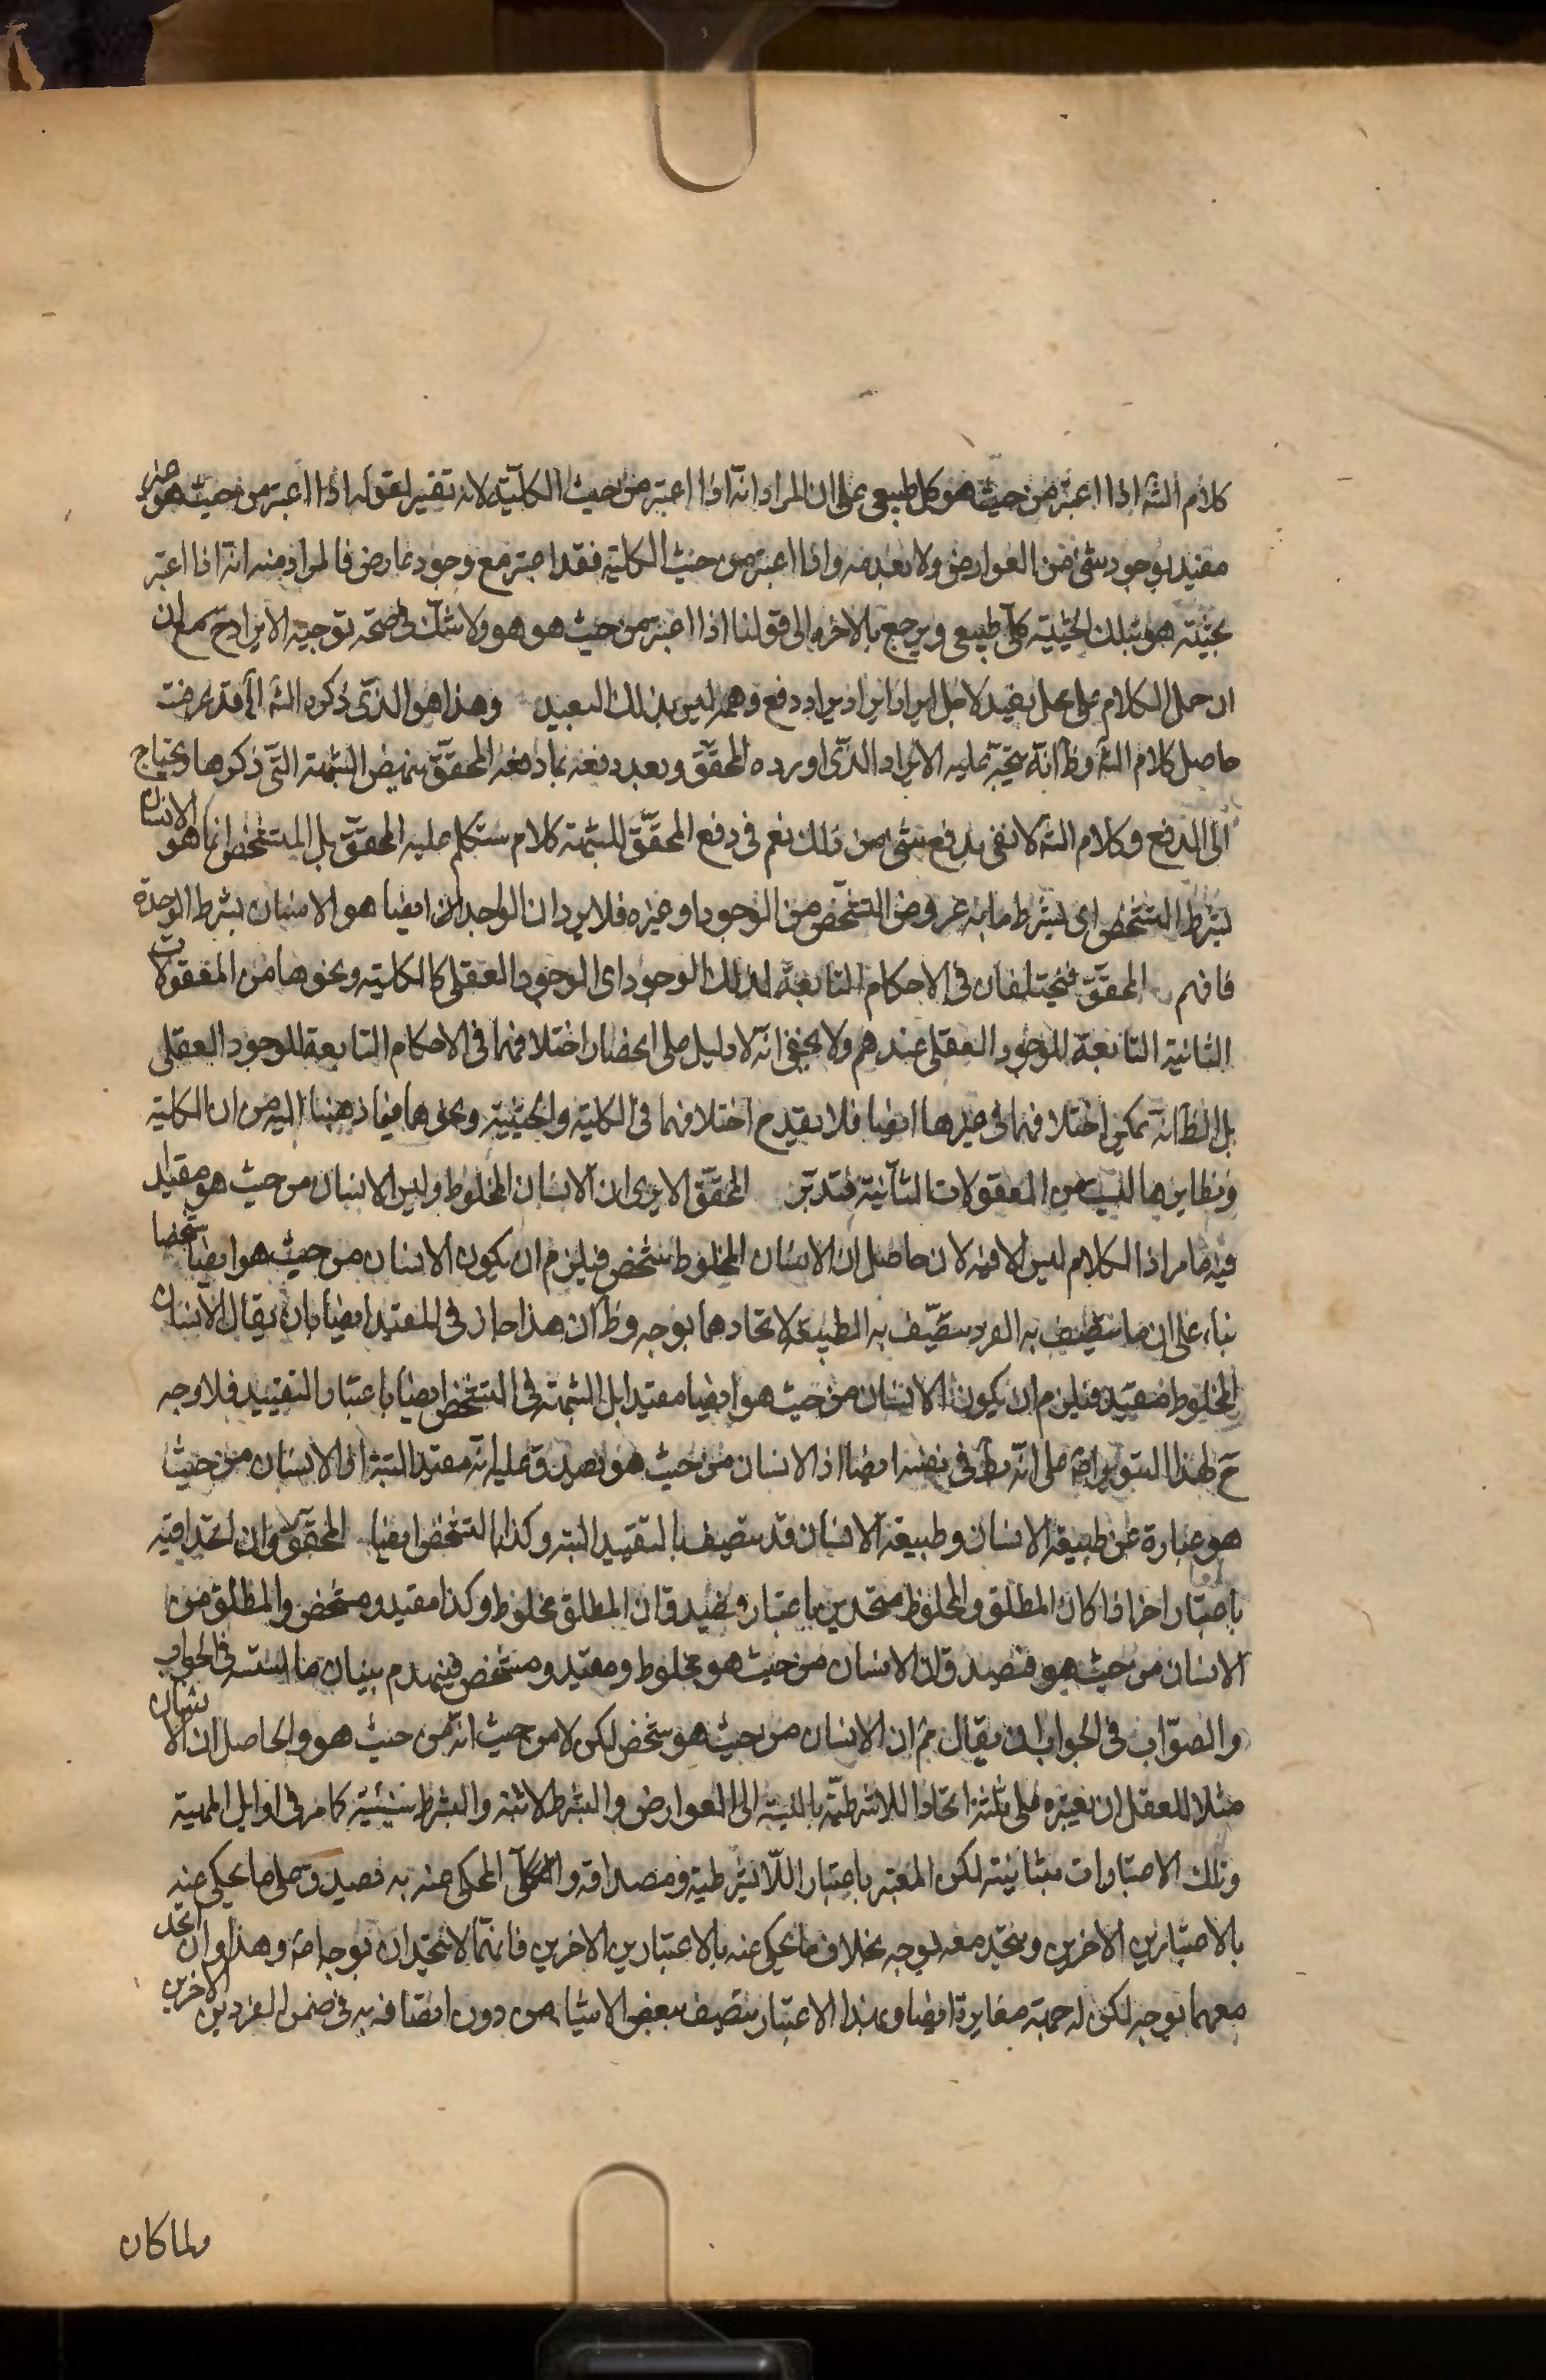 كلام الشه اذا اعتبر من حيث هو كل طبيعي على ان المراد انه اذا اعتبر من حيث الكلية لانه تفسير لقوله اذا اعتبر من حيث هو غير
مقيد بوجود شئ من العوارض ولا بعدمه واذا اعتبر من حيث الكلية فقد اعتبر مع وجود عارض فالمراد منه انه اذا اعتبر
بحيثية هو بتلك الحيثية كلي طبيعي ويرجع بالاخره الى قولنا اذا اعتبر من حيث هو هو ولا شك في صحة توجيه الايراد ح مع ان
ان حمل الكلام على محل بعيد لاجل ايراد اين اد دفع وهم ليس بذلك البعيد وهذا هو الذي ذكره الشه الخ قد عرفت
حاصل كلام الشه وظ انه يتجه عليه الايراد الذي اورده المحقق وبعد دفعه بما دفعه المحقق ينهض الشبهة التي ذكرها ويحتاج
الى الدفع وكلام الشه لا يفى بدفع شئ من ذلك نعم في دفع المحقق للشبهة كلام ستكلم عليه المحقق بل المتشخص انما هو الانسان
بشرط التشخص اى بشرط ما به عروض التشخص من الوجود او غيره فلا يرد ان الواحد ايضا هو الانسان بشرط الوحدة
فافهم المحقق فيختلفان في الاحكام التابعة لذلك الوجود اى الوجود العقلي كالكلية ونحوها من المعقولات
الثانية التابعة للوجود العقلي عندهم ولا يخفى انه لا دليل على انحصار اختلافهما في الاحكام التابعة للوجود العقلي
بل الظ انه يمكن اختلافهما في غيرها ايضا فلا يقدح اختلافهما في الكلية والجنسية ونحوها فيما ذهبنا اليه من ان الكلية
ونظايرها ليست من المعقولات الثانية فتدبر المحقق الا يرى ان الانسان المخلوط وليس الانسان من حيث هو مقيد
فيه ما مر اذ الكلام ليس الا فيه لان حاصل ان الانسان المخلوط شخص فيلزم ان يكون الانسان من حيث هو ايضا شخصا
بناء على ان ما يتصف به الفرد يتصف به الطبيعة لاتحادهما بوجه وظ ان هذا جار في المقيد ايضا بان يقال الانسان
المخلوط مقيد فيلزم ان يكون الانسان من حيث هو ايضا مقيدا بل الشبهة في التشخص ايضا باعتبار التقييد فلا وجه
ح لهذا التنوير اصلا على انه بط في نفسه ايضا اذ الانسان من حيث هو يصدق عليه انه مقيد البتة اذ الانسان من حيث
هو عبارة عن طبيعة الانسان وطبيعة الانسان قد يتصف بالتقييد البتة وكذا بالتشخص ايضا المحقق وان اتحدا فيه
باعتبار اخر اذا كان المطلق والمخلوط متحدين باعتبار فيصدق ان المطلق مخلوط وكذا مقيد ومشخص والمطلق من
الانسان من حيث هو فيصدق ان الانسان من حيث هو مخلوط ومقيد ومشخص فينهدم بنيان ما اسسه في الجواب
والصواب في الجواب ان يقال نعم ان الانسان من حيث هو شخص لكن لا من حيث انه من حيث هو والحاصل ان الانسان
مثلا للعقل ان يعتبره على ثلثة انحاء اللاشرطية بالنسبة الى العوارض والشرط لائية والشرط شيئية كما مر في اوايل المهية
وتلك الاعتبارات متباينة لكن المعتبر باعتبار اللاشرطية ومصداقه والمحكى عنه به فصيدق على ما يحكى عنه
بالاعتبارين الاخرين ويتحد معه بوجه بخلاف ما يحكى عنه بالاعتبارين الاخرين فانهما لا يتحدان بوجه اصلا وهذا وان اتحد
معهما بوجه لكن له جهة مغايرة ايضا وبهذا الاعتبار يتصف ببعض الاشياء من دون اتصافه به في ضمن الفردين الاخرين
ولما كان